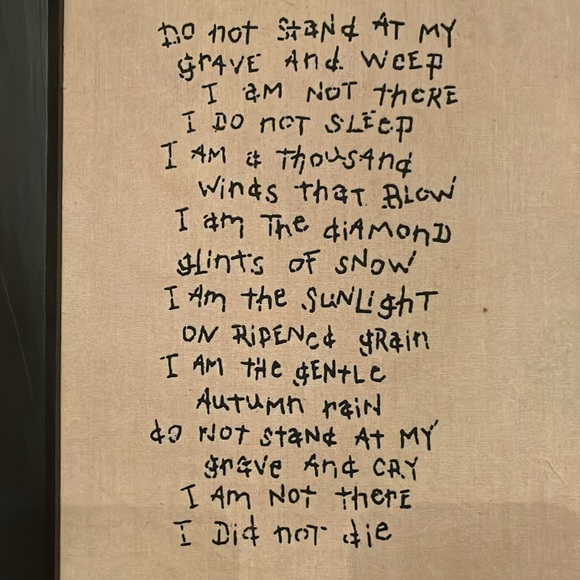 DO not StaNd AT MY
grAVE And WEEP
I aM NOT thERE
I DO noT SLEEp
I AM a thouSANd
WiNdS thaT BLOW
I am The diAMonD
gLintS OF SNOW
I AM the SUNLight
ON RiPENEd gRain
I AM tHe gENtLe
AutuMn raiN
do NOt StaNd At MY
grave ANd CRY
I AM Not therE
I Did noT die